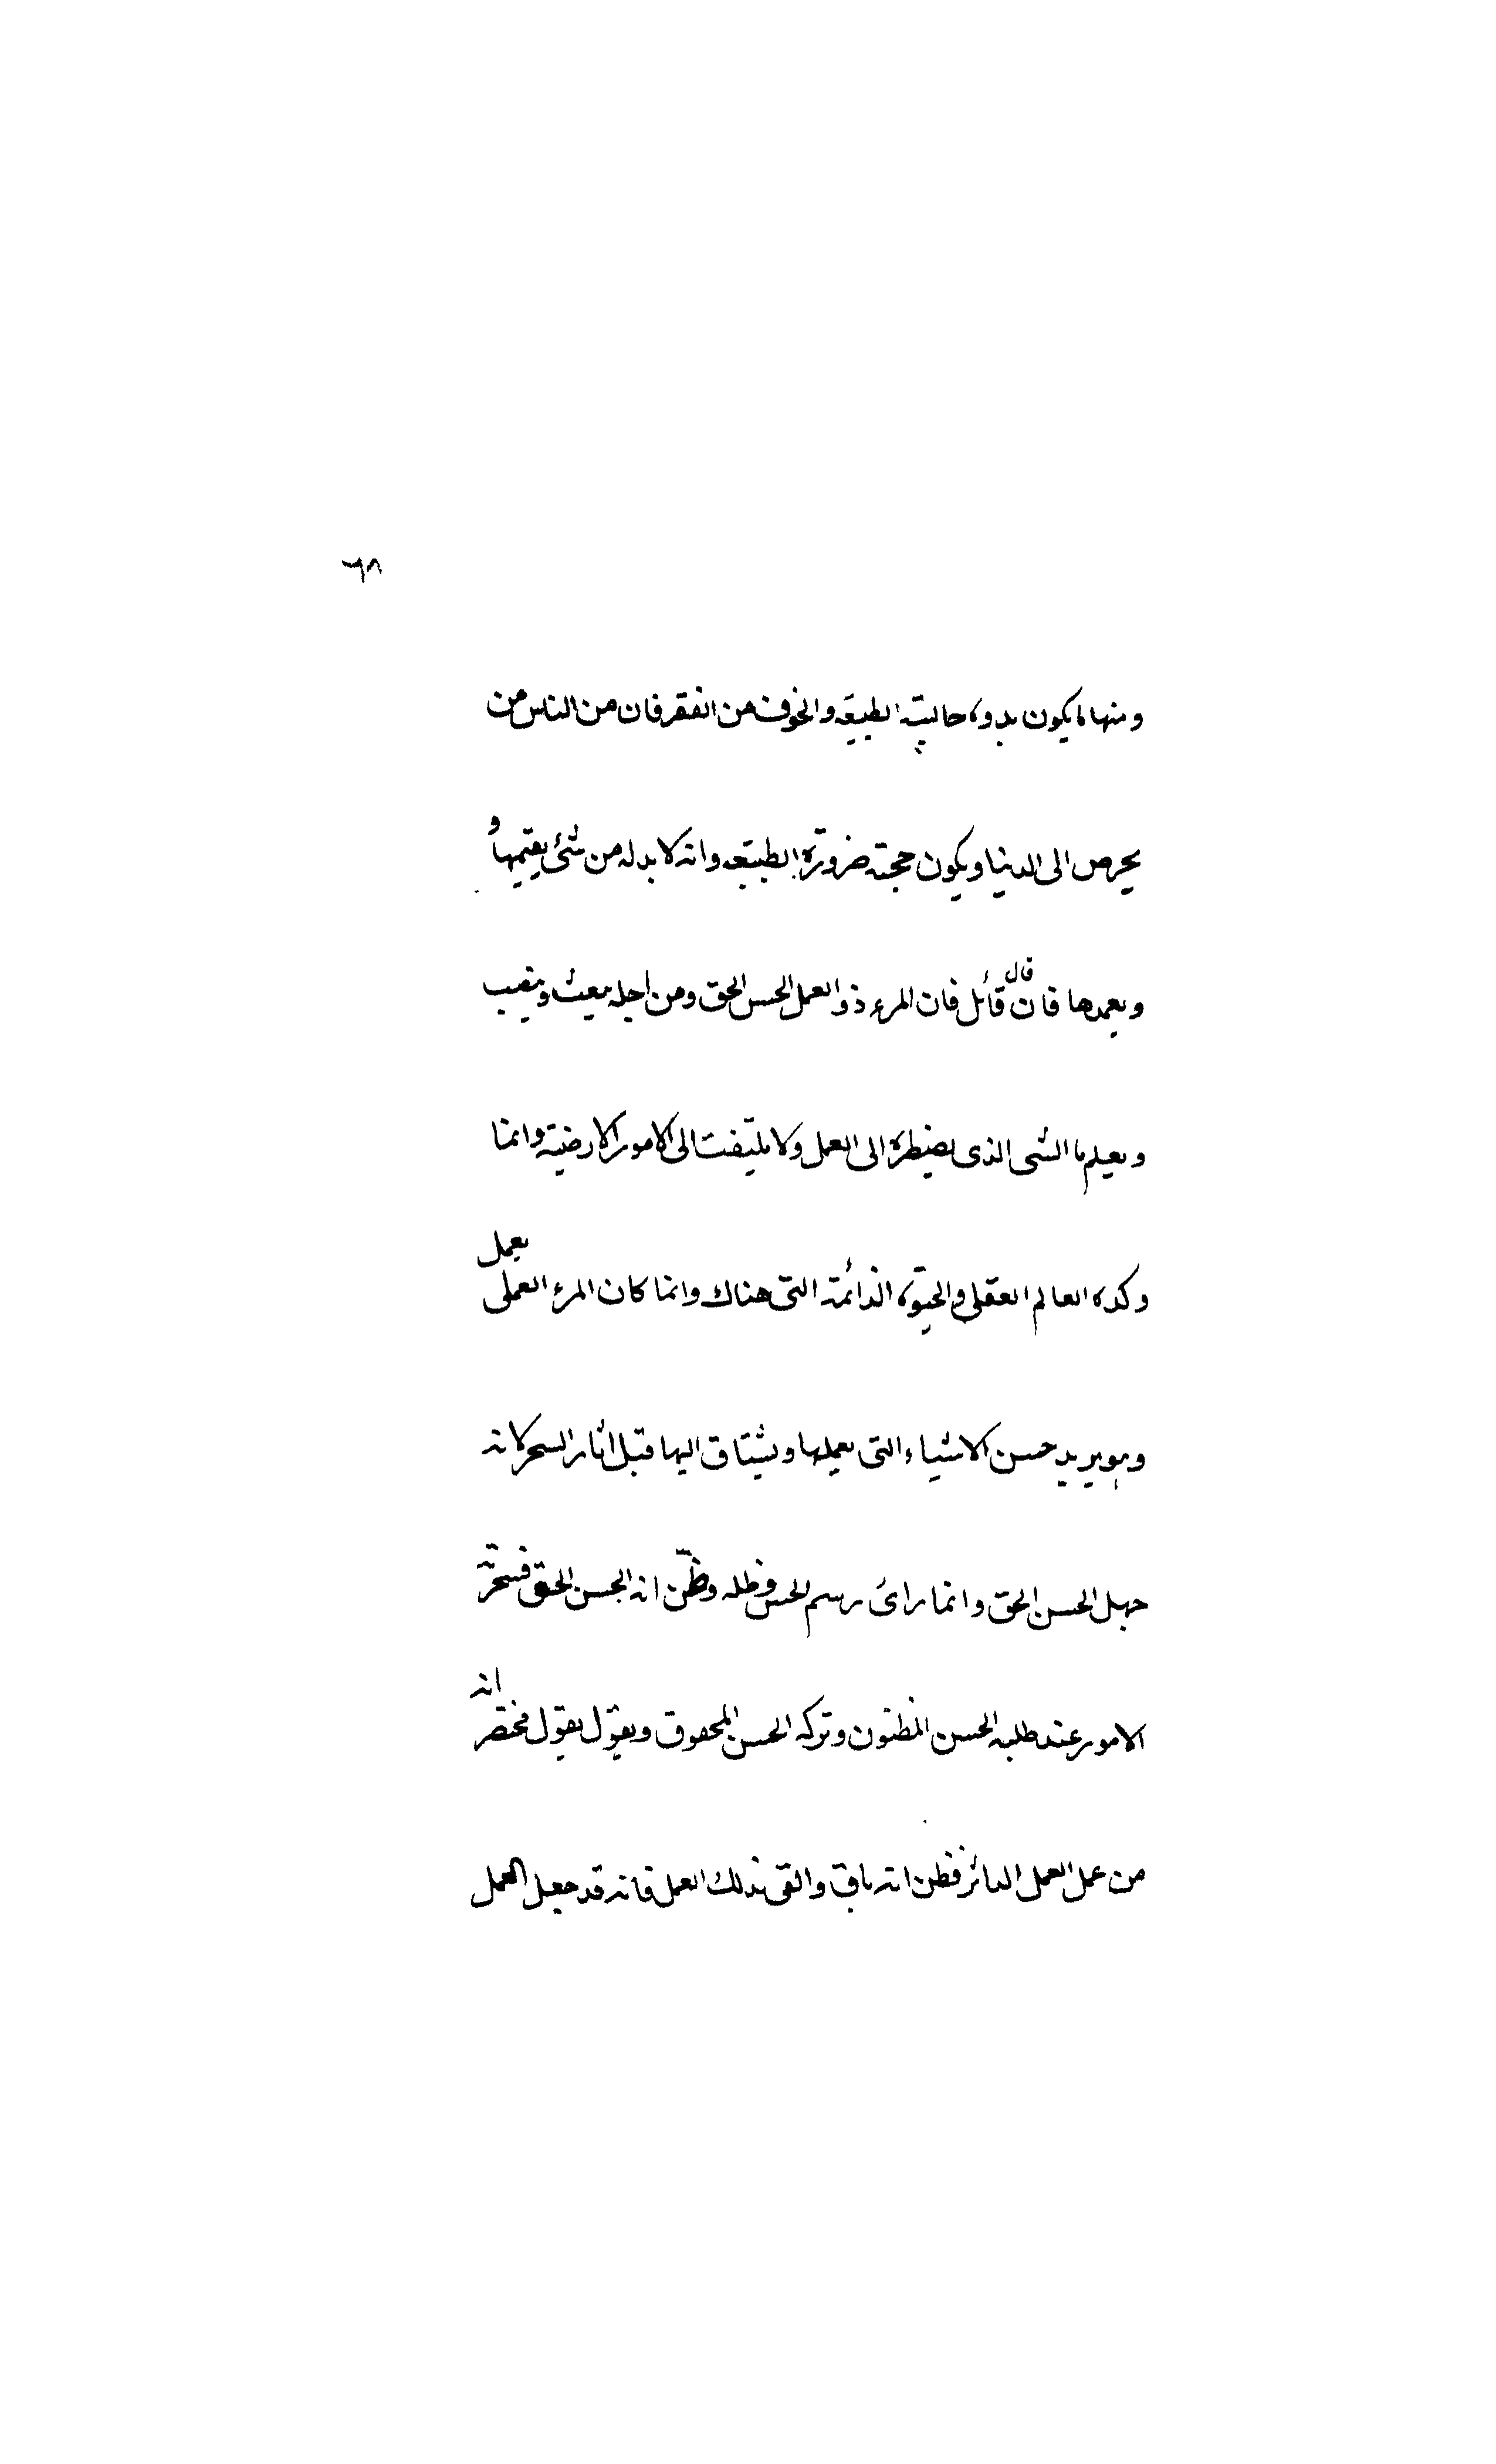 ٦٨
ومنها ما يكون بدوه حاجته الطبيعة والخوف من الفقر فان من الناس من
يحرص الى الدنيا ويكون حجته ضرورة الطبيعه وانه لا بد له من شئ يقيمها و
ويعمدها فان قال قائل فان المرء ذو العمل الحسن الحق ومن اجله يبعث ويتعب
ويعلم ما الشى الذى يضطره الى العمل ولا يلتفت الى الامور الارضية وانما
وكده العالم العقلى والحيوة الدائمة التى هناك وانما كان المرء العملى يعمل
وهو يريد حسن الاشياء التى يعملها ويشتاق اليها قبل اثار السحر لانه
جهل الحسن الحق وانما راى رسم الحسن وظله وظنّ انه الحسن الحق فسحرته
الامور عند طلبه الحسن المظنون وتركه الحسن المحقوق ويقول بقول مختصر انه
من عمل العمل الداثر فظن انه باق والقى بذلك العمل فانه قد جعل العمل